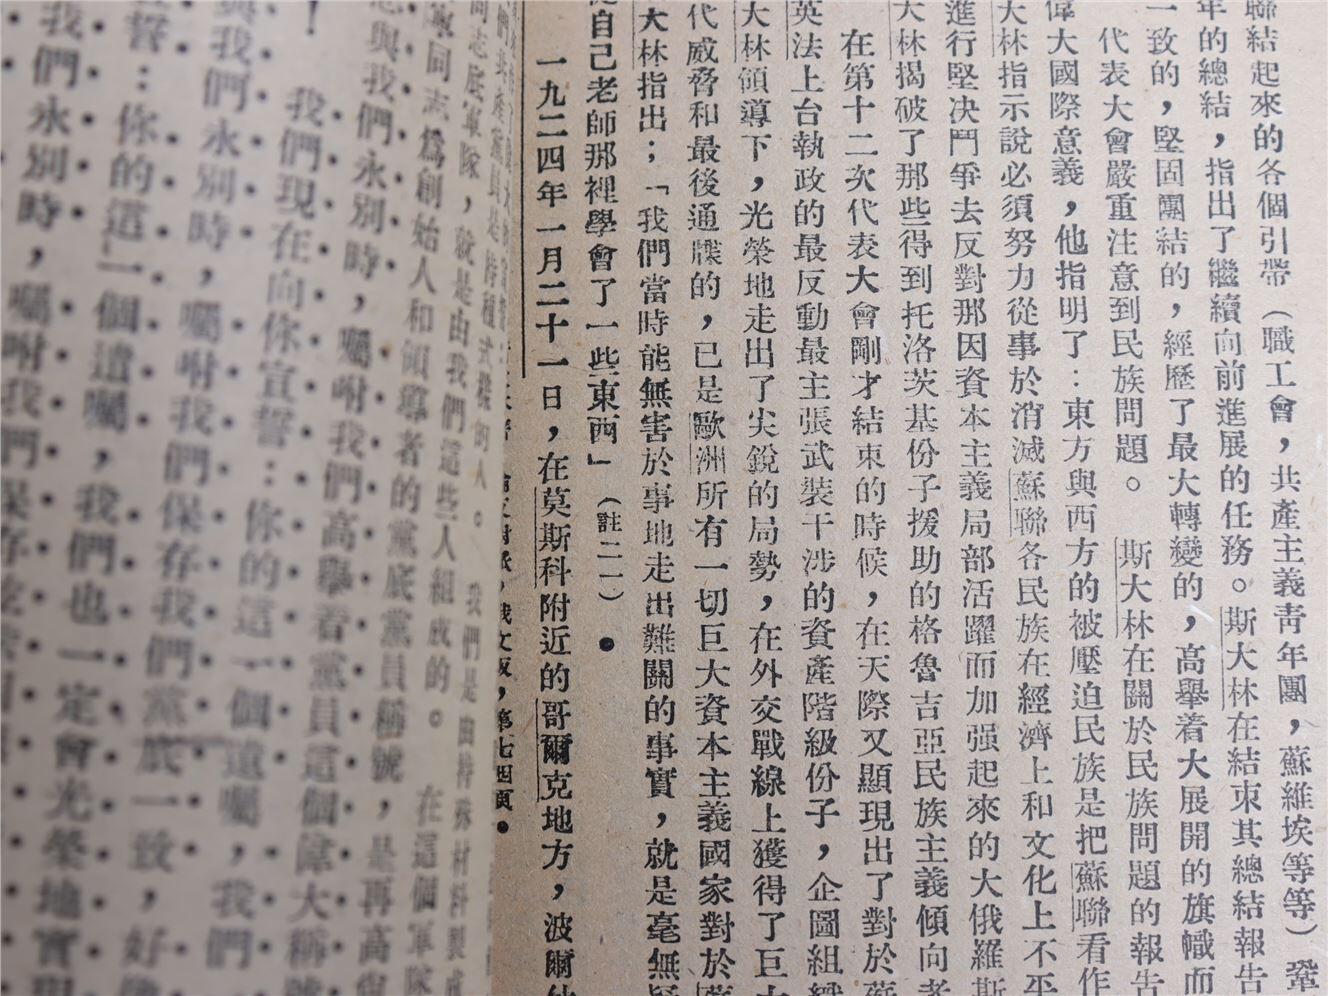 聯結起來的各個引帶（職工會，共產主義靑年團，蘇維埃等等）鞏
年的總結，指出了繼續向前進展的任務。斯大林在結束其總結報告
一致的，堅固團結的，經歷了最大轉變的，高舉着大展開的旗幟而
代表大會嚴重注意到民族問題。　斯大林在關於民族問題的報告
偉大國際意義，他指明了：東方與西方的被壓迫民族是把蘇聯看作
大林指示說必須努力從事於消滅蘇聯各民族在經濟上和文化上不平
進行堅决鬥爭去反對那因資本主義局部活躍而加强起來的大俄羅斯
大林揭破了那些得到托洛茨基份子援助的格魯吉亞民族主義傾向者
在第十二次代表大會剛才結束的時候，在天際又顯現出了對於
英法上台執政的最反動最主張武裝干涉的資產階級份子，企圖組織
大林領導下，光榮地走出了尖銳的局勢，在外交戰線上獲得了巨大
代威脅和最後通牒的，已是歐洲所有一切巨大資本主義國家對於
大林指出；「我們當時能無害於事地走出難關的事實，就是毫無疑
從自己老師那裡學會了一些東西」（註二一）。
一九二四年一月二十一日，在莫斯科附近的哥爾克地方，波爾
俄文版，第七四頁。
我們是由特殊材料製成
同志底軍隊，就是由我們這些人組成的。　在這個軍隊
同志爲創始人和領導者的黨底黨員稱號，是再高
與我們永別時，囑咐我們高舉着黨員這個偉大稱號
！　我們現在向你宣誓：你的這一個遺囑，我們
與我們永別時，囑咐我們保存我們黨底一致，好
誓：你的這一個遺囑，我們也一定會光榮地實現
我們永別時，囑咐我們保存